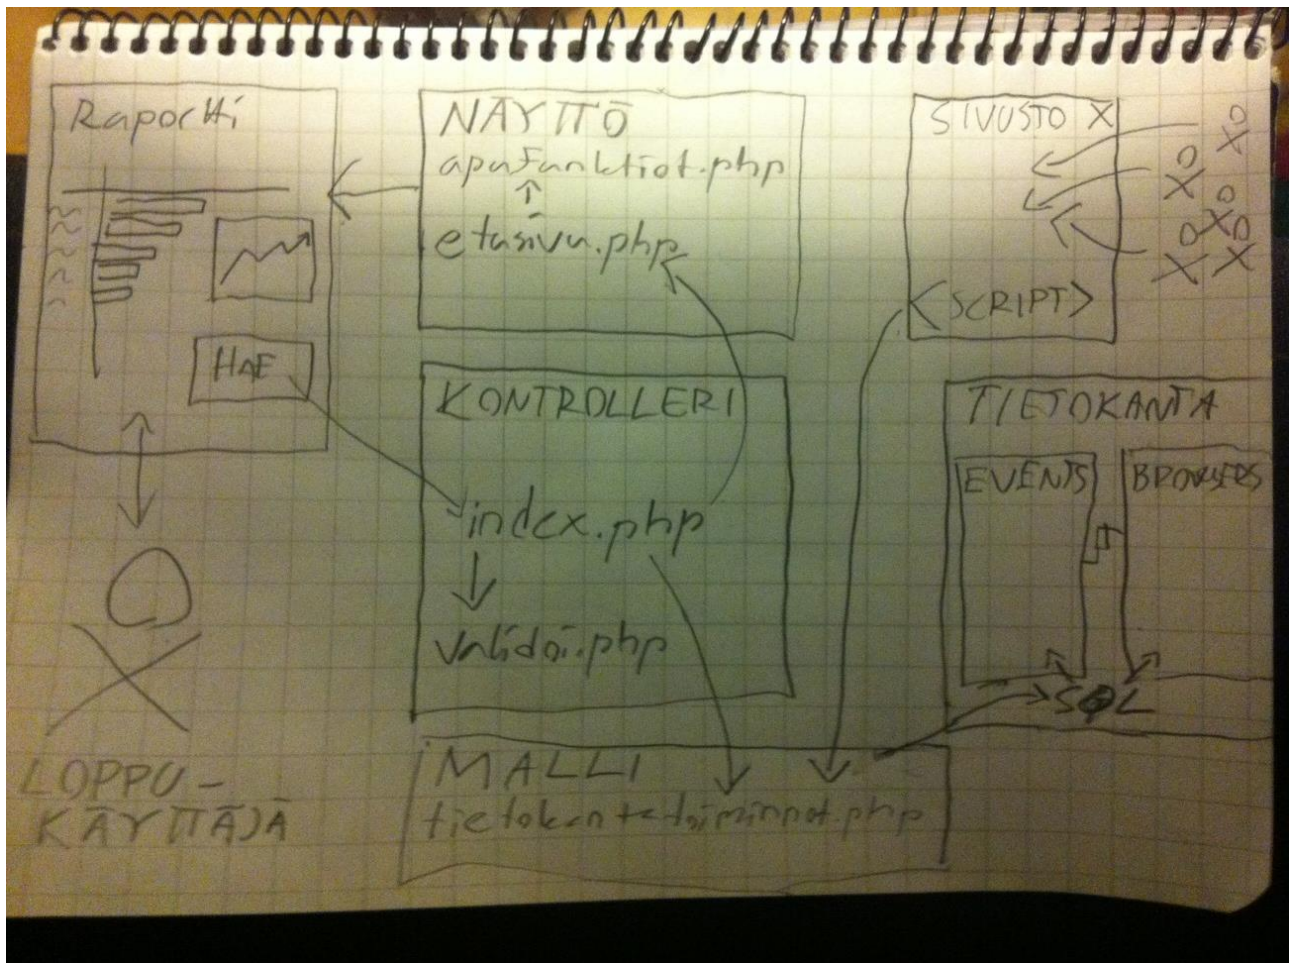 Raportti
HAE
LOPPU-
KÄYTTÄJÄ
NÄYTTÖ
apufunktiot.php
etusivu.php
KONTROLLERI
index.php
validoi.php
MALLI
tietokantatoiminnot.php
SIVUSTO X
<SCRIPT>
TIETOKANTA
EVENTS
BROWSERS
SQL